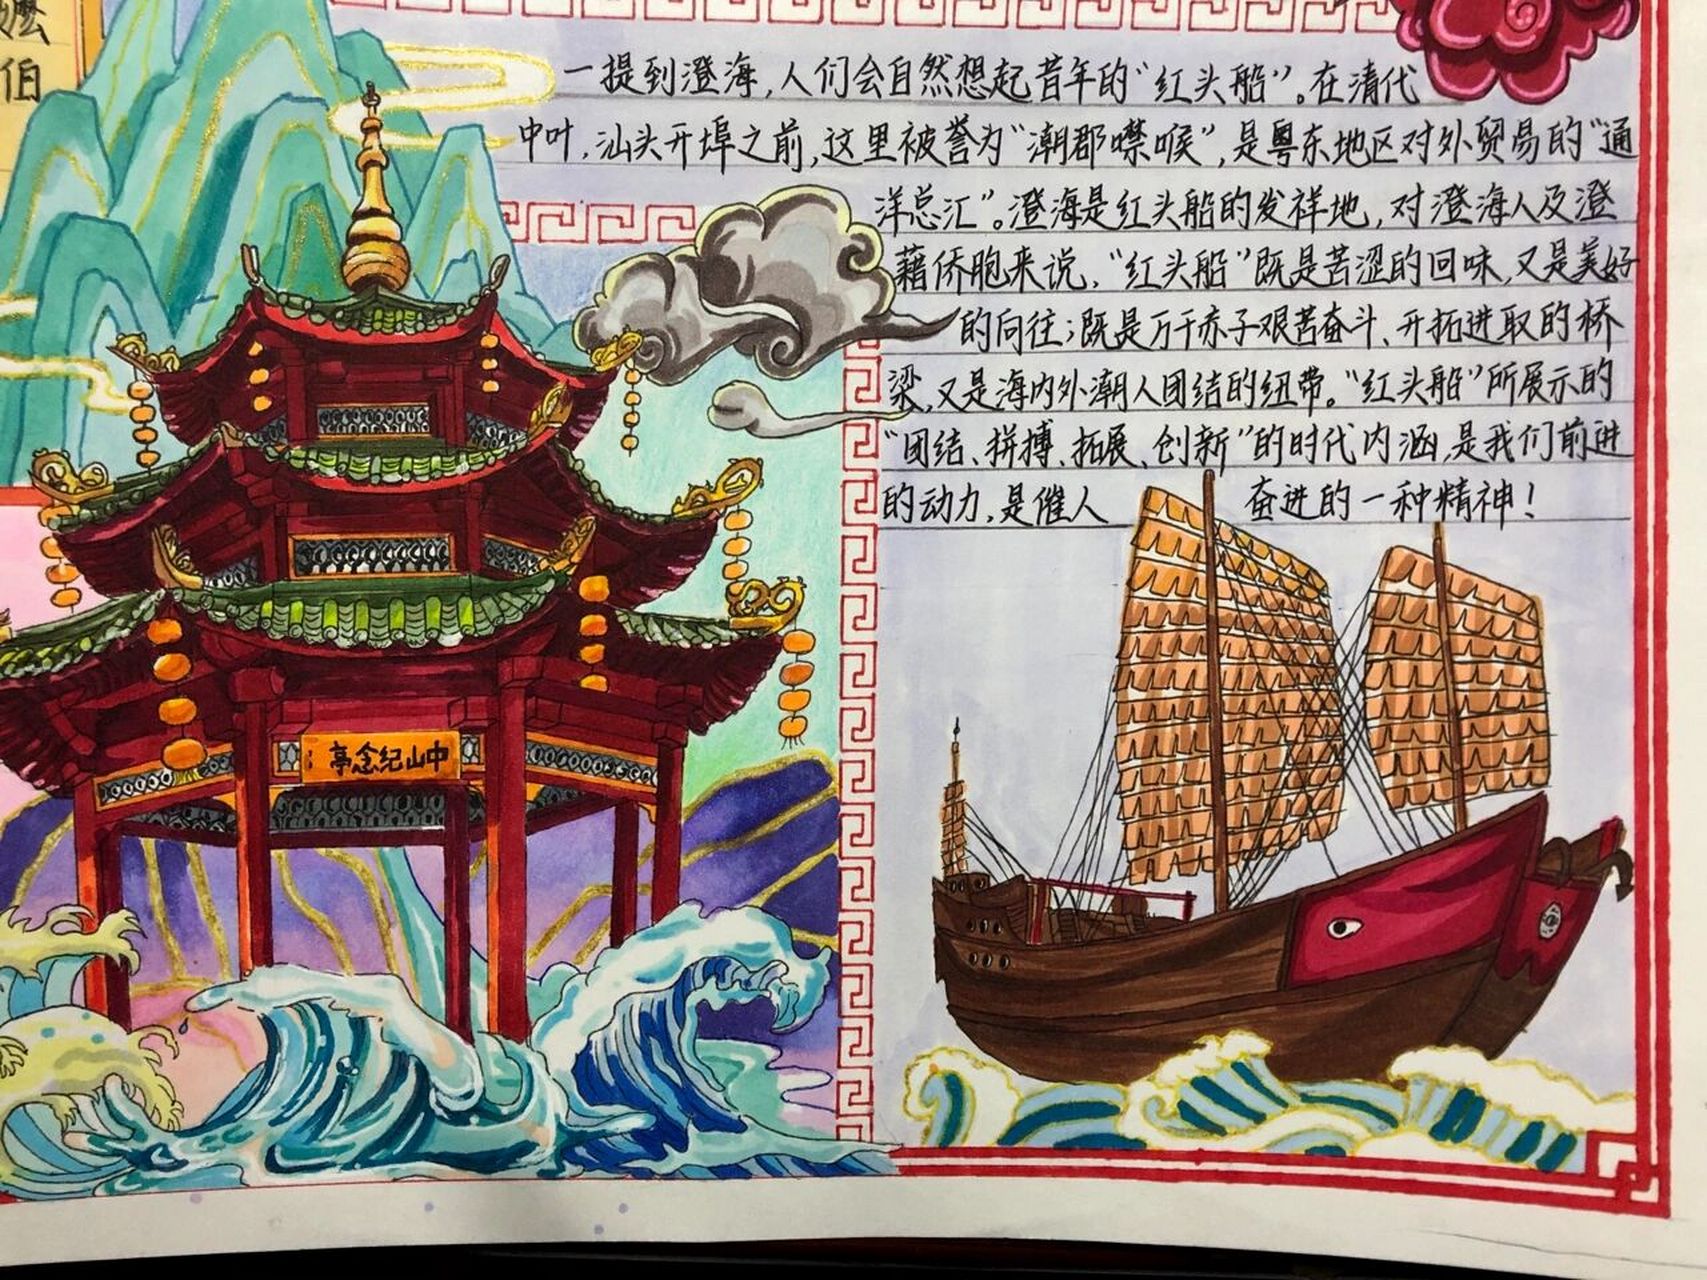 嬷
伯
一提到澄海,人们会自然想起昔年的“红头船”。在清代
中叶,汕头开埠之前,这里被誉为“潮郡襟喉”,是粤东地区对外贸易的“通
洋总汇”。澄海是红头船的发祥地,对澄海人及澄
藉侨胞来说,“红头船”既是苦涩的回味,又是美好
的向往;既是万千赤子艰苦奋斗、开拓进取的桥
梁,又是海内外潮人团结的纽带。“红头船”所展示的
“团结、拼搏、拓展、创新”的时代内涵,是我们前进
的动力,是催人 奋进的一种精神!
亭念纪山中